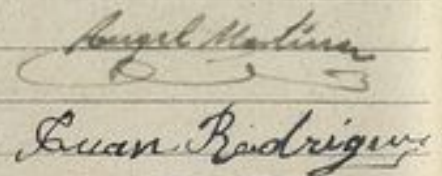 Angel Martinez
Juan Rodriguez